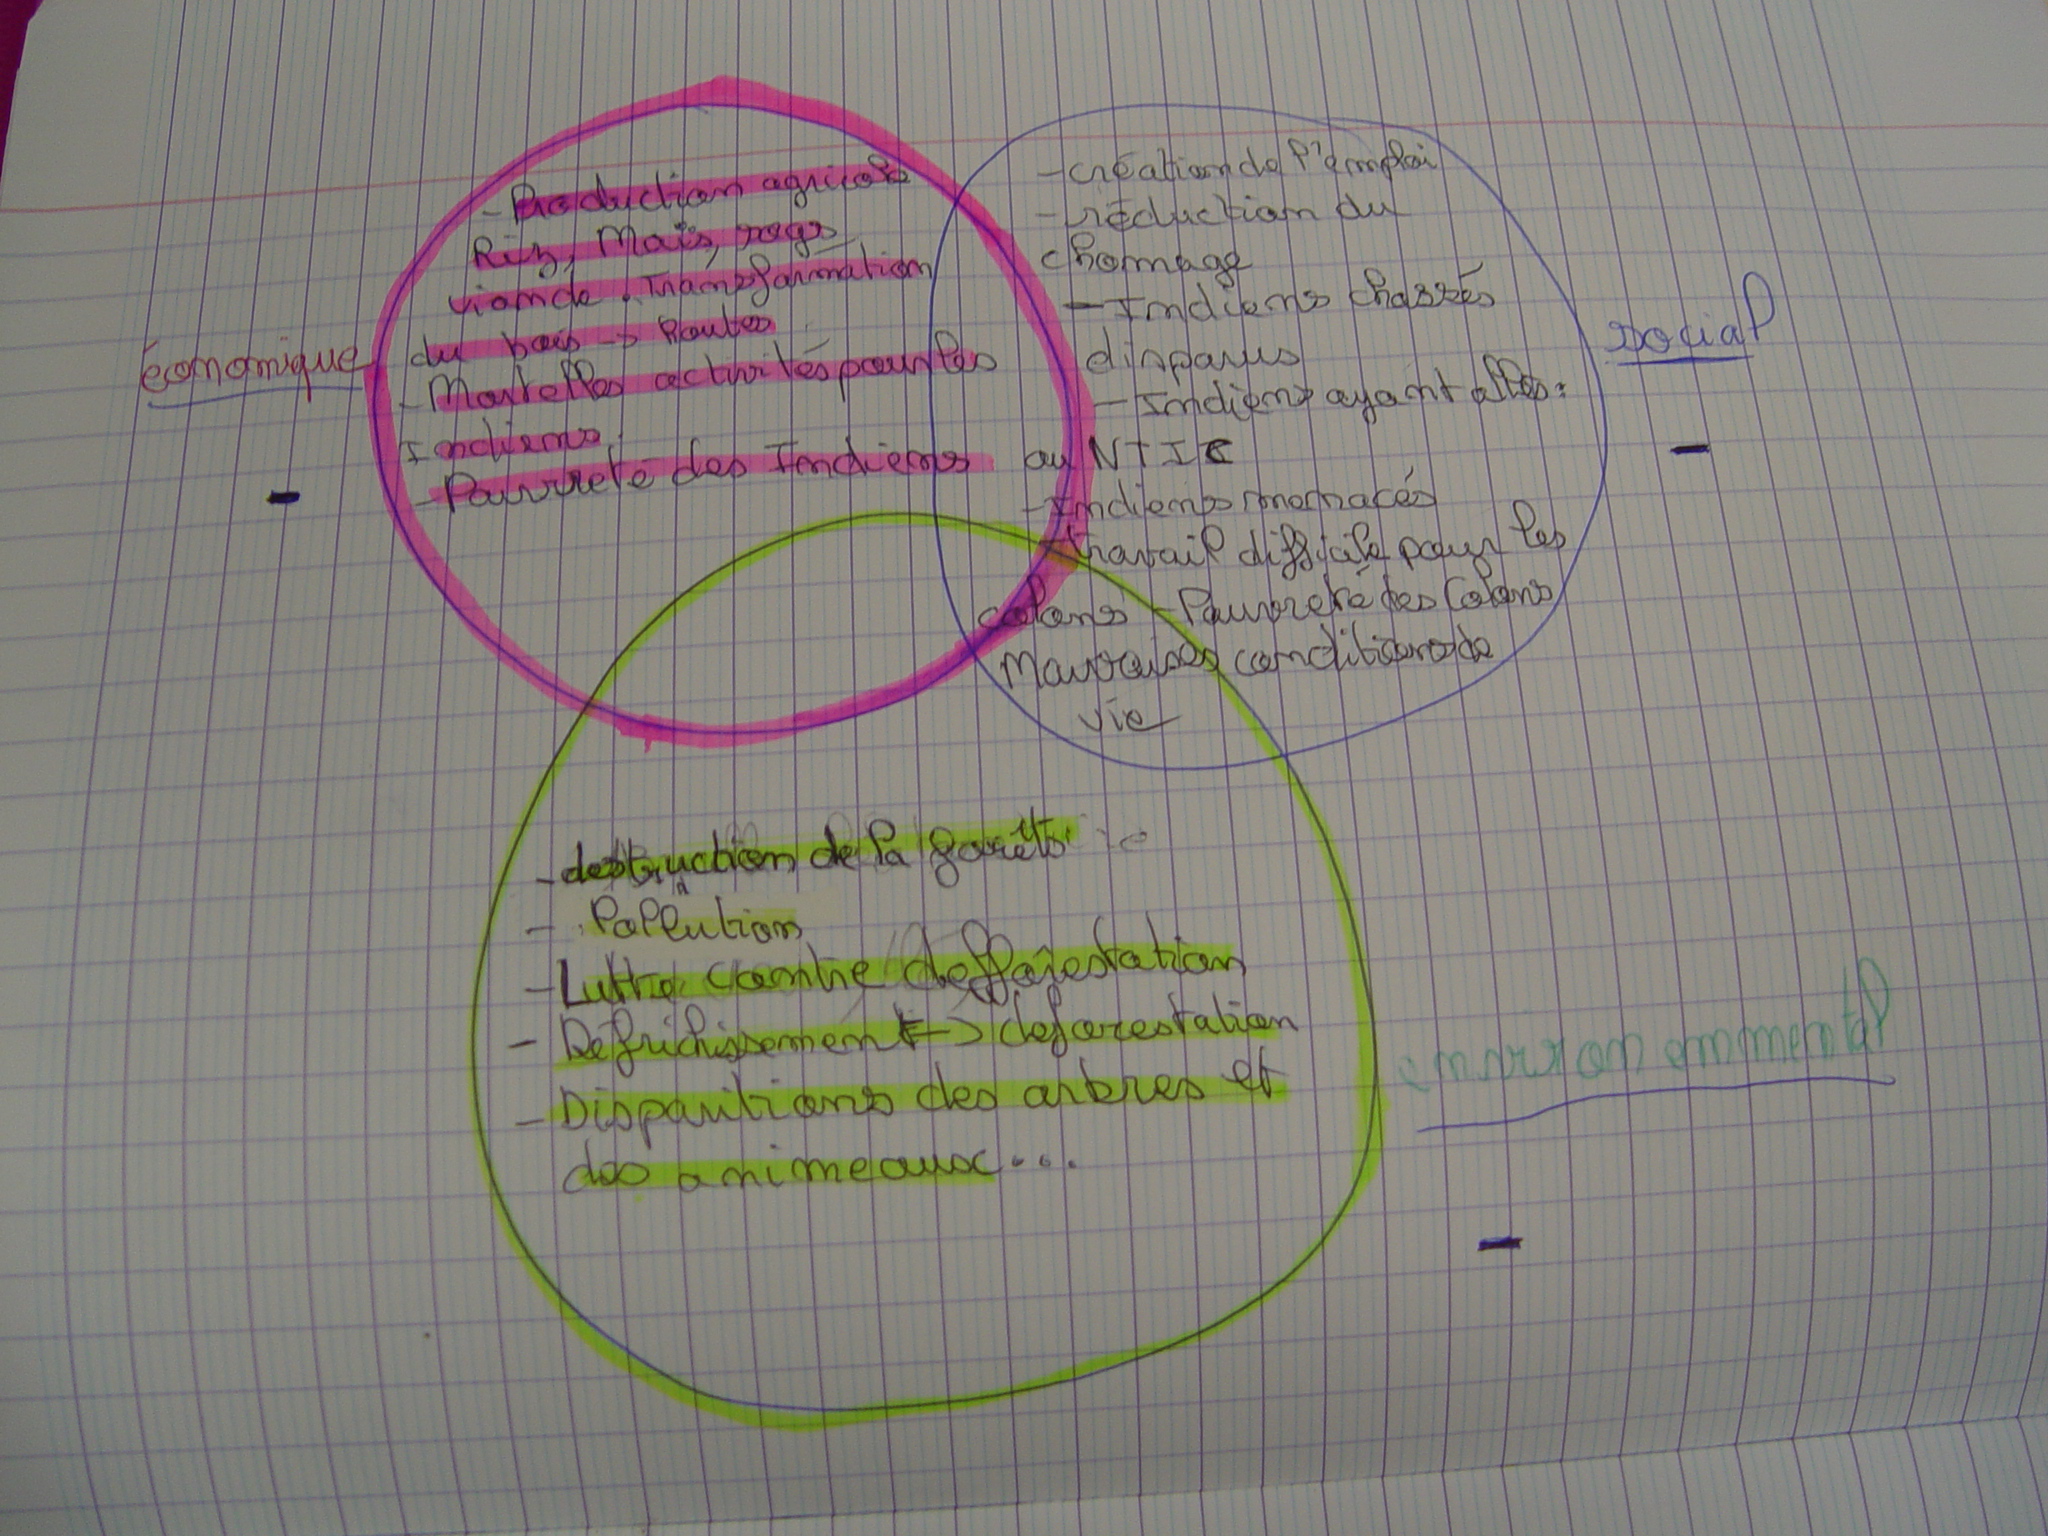 économique
- Production agricole
Riz, Maïs, soja
viande. Transformation
du bois → Routes
- Mortelles activités pour les
Indiens.
- Pauvreté des Indiens
-
- création de l'emploi
- réduction du
chomage
- Indiens chassés
disparus
- Indiens ayant accès:
au NTIC
- Indiens menacés
travail difficile pour les
colons - Pauvreté des Colons
Mauvaises conditions de
vie
social
-
- destruction de la forêts
- Pollution
- Luttre contre defforestation
- Défrichissement → deforestation
- Disparitions des arbres et
des animeaux...
environemmental
-